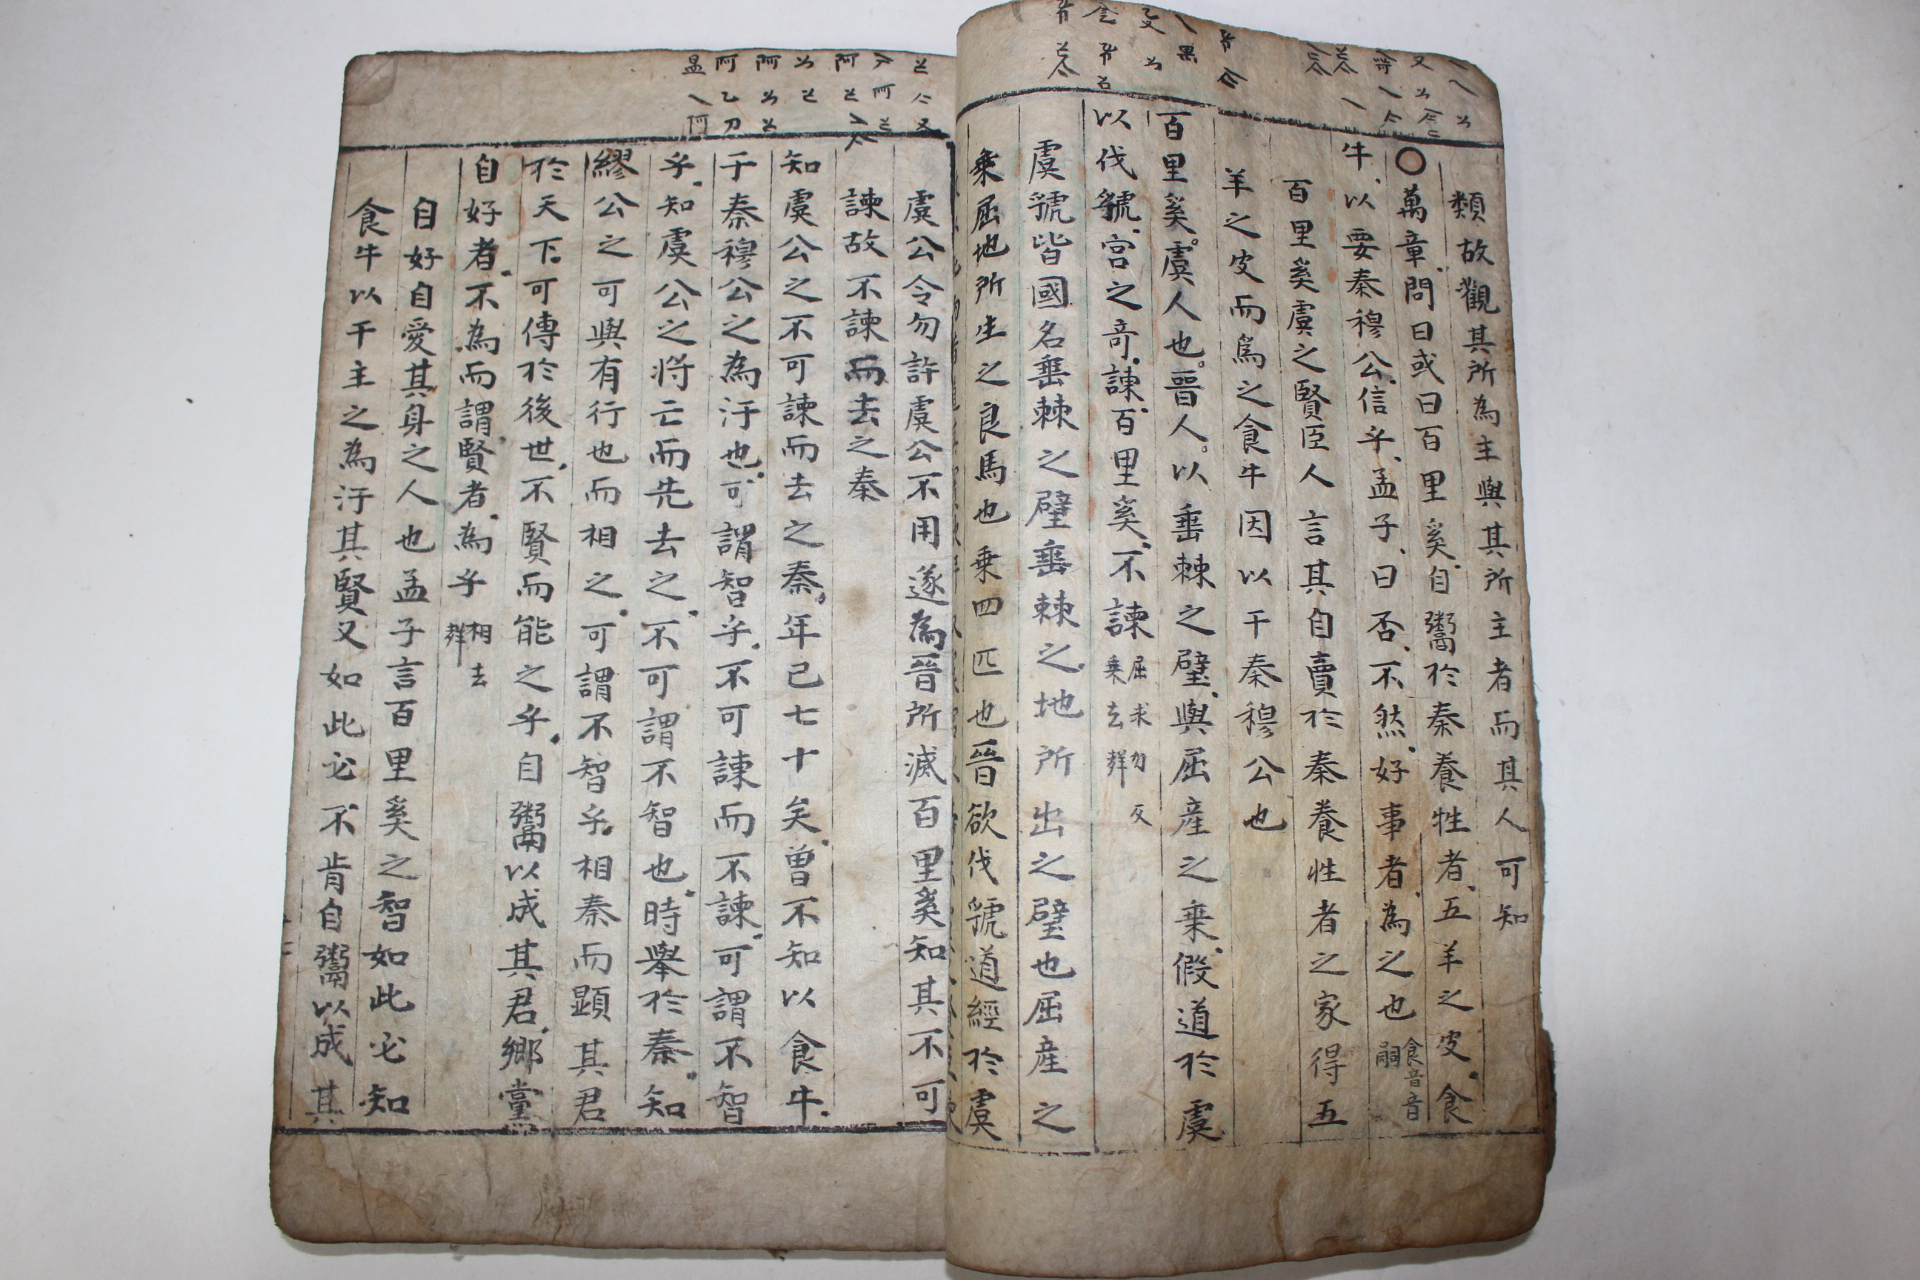 類故觀其所為主與其所主者而其人可知
○萬章問曰或曰百里奚自鬻於秦養牲者五羊之皮食
牛以要秦穆公信乎孟子曰否不然好事者為之也
食音
嗣
百里奚虞之賢臣人言其自賣於秦養牲者之家得五
羊之皮而為之食牛因以干秦穆公也
百里奚虞人也晉人以垂棘之璧與屈産之乗假道於虞
以伐虢宮之奇諫百里奚不諫
屈求勿反
乗去聲
虞虢皆國名垂棘之璧垂棘之地所出之璧也屈産之
乗屈地所生之良馬也乗四匹也晉欲伐虢道經於虞
虞公令勿許虞公不用遂為晉所滅百里奚知其不可
諫故不諫而去之秦
知虞公之不可諫而去之秦年已七十矣曽不知以食牛
于秦穆公之為汙也可謂智乎不可諫而不諫可謂不智
乎知虞公之將亡而先去之不可謂不智也時舉於秦知
繆公之可與有行也而相之可謂不智乎相秦而顯其君
於天下可傳於後世不賢而能之乎自鬻以成其君鄉黨
自好者不為而謂賢者為乎
相去
聲
自好自愛其身之人也孟子言百里奚之智如此必知
食牛以干主之為汙其賢又如此必不肯自鬻以成其